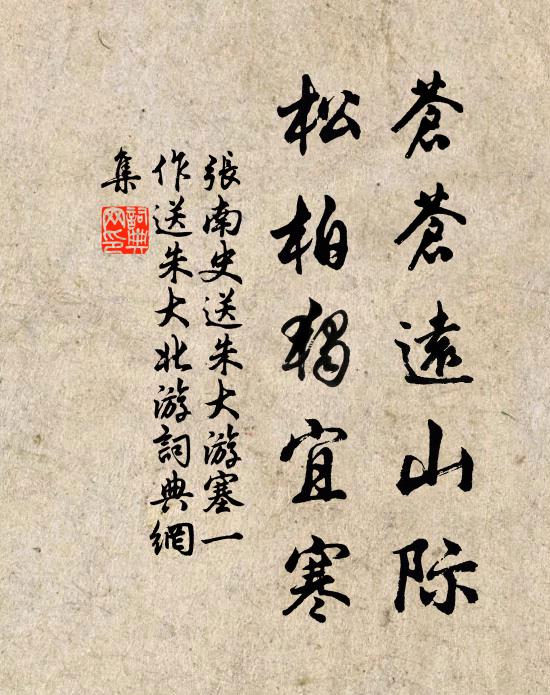 蒼蒼遠山际
松柏獨宜寒
張南史送朱大游塞一
作送朱大北游詞典網
集
詞典
网印